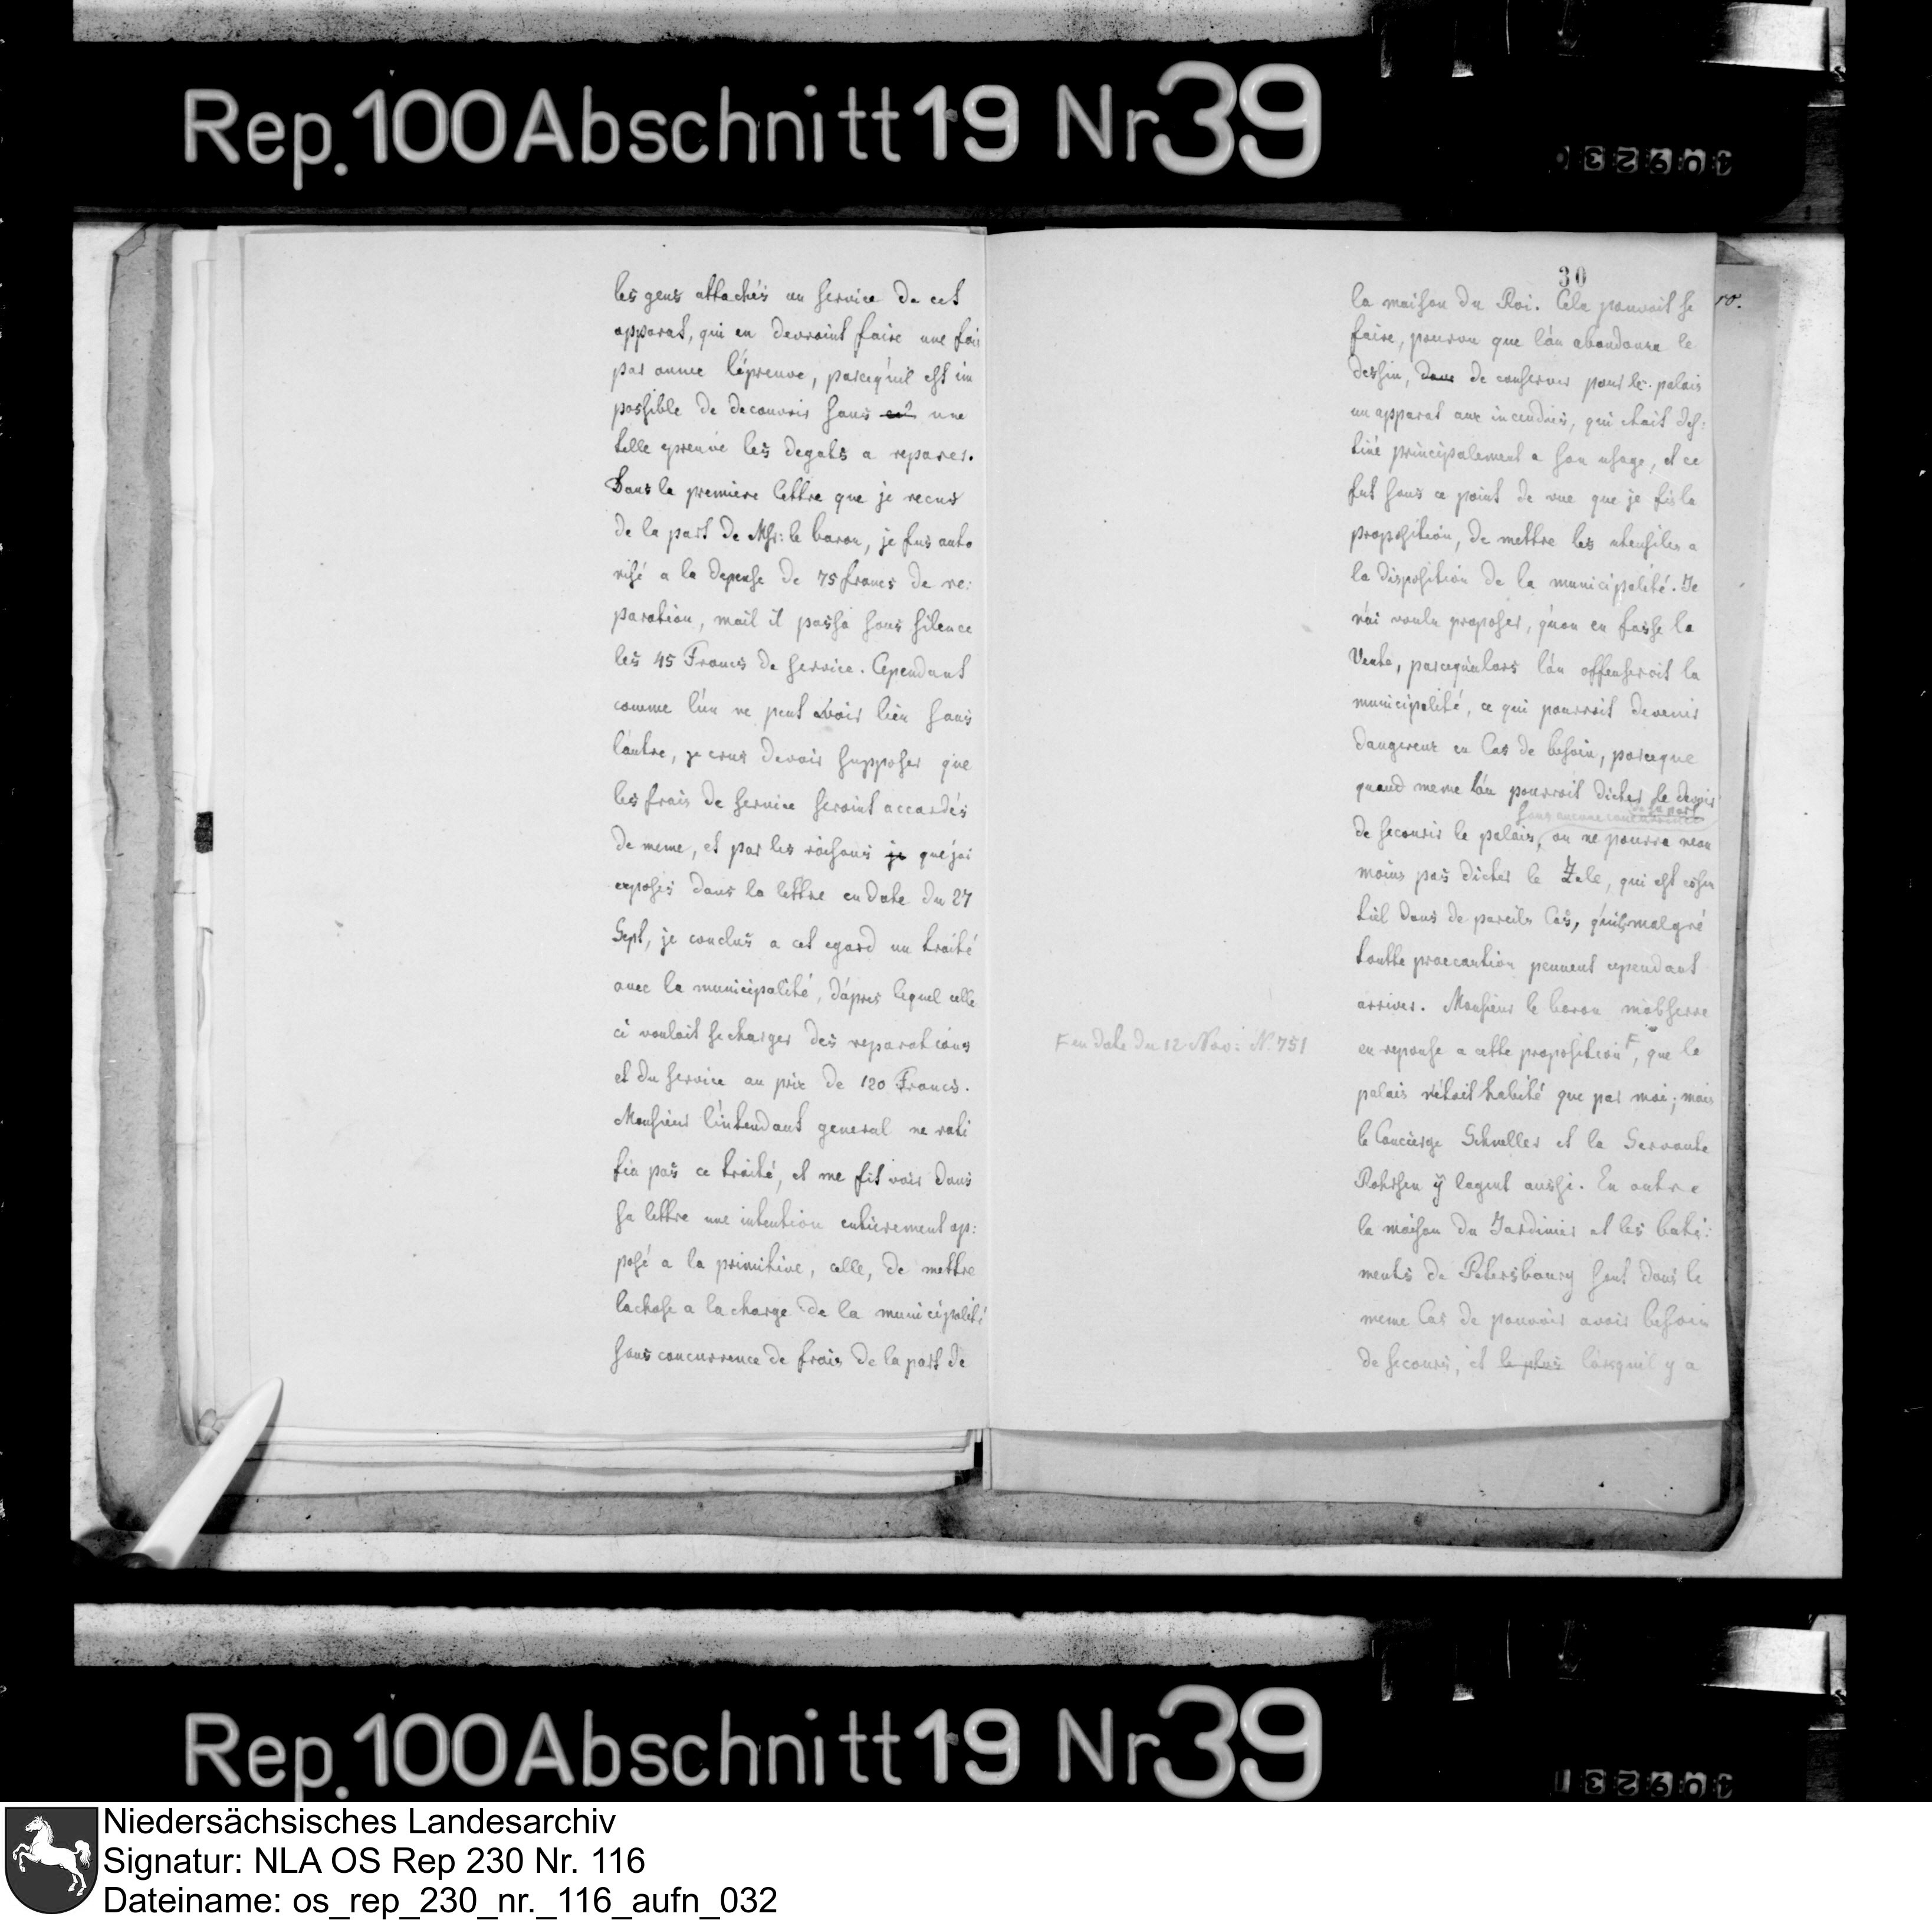 Rep. 100 Abschnitt 19 Nr 39
les gens attachés au service de cet
apparat, qui en devroint faire une foi
par annee l'épreuve, parceq'uil est im
possible de decouvrir sans une
telle epreuve les degats a reparer.
Dans la premiere lettre que je recus
de la part de Msr: le baron, je fus auto
risé a la depense de 75 francs de re:
paration, mail il passa sous silence
les 45 Francs de service. Cependant
comme l'un ne peut avoir lieu sans
l'autre, je crus devoir supposer que
les frais de service seroint accordés
de meme, et par les raisons je que j'ai
exposés dans la lettre en date du 27
Sept, je conclus a cet egard un traité
avec la municipalité, d'apres lequel celle
ci vouloit se charger des reparations
et du service au prix de 120 Francs.
Monsieur l'intendant general ne rati
fia pas ce traité, et me fit voir dans
sa lettre une intention entierement op:
posé a la primitive, celle, de mettre
la chose a la charge de la municipalité
sans concurrence de frais de la part de
30
la maison du Roi. Cela pouvoit se
faire, pourvu que l'on abandonna le
dessin, dans de conserver pour le palais
un apparat aux incendies, qui etait des:
tiné principalement a son usage, et ce
fut sous ce point de vue que je fis la
proposition, de mettre les utensiles a
la disposition de la municipalité. Je
n'ai voulu proposer, qu'on en fasse la
Vente, parcequ'alors l'on offenseroit la
municipalité, ce qui pourroit devenir
dangereux en Cas de besoin, parceque
quand meme l'on pourroit dicter le devoir
sans aucune concurrence de sa part
de secourir le palais, on ne pourra nean
moins pas dicter le Zele, qui est essen
tiel dans de pareils Cas, q'uils malgré
toutte praecaution peuvent cependant
arriver. Monsieur le baron m'observe
en reponse a cette proposition F, que le
F en date du 12 Nov: N. 751
palais n'étoit habité que par moi; mais
le Concierge Schneller et la Servante
Rohrsen y logent aussi. En outre
la maison du Jardinier et les bati:
ments de Petersbourg sont dans le
meme Cas de pouvoir avoir besoin
de secours, et le plus lorsquil y a
ro.
Rep. 100 Abschnitt 19 Nr 39
Niedersächsisches Landesarchiv
Signatur: NLA OS Rep 230 Nr. 116
Dateiname: os_rep_230_nr._116_aufn_032